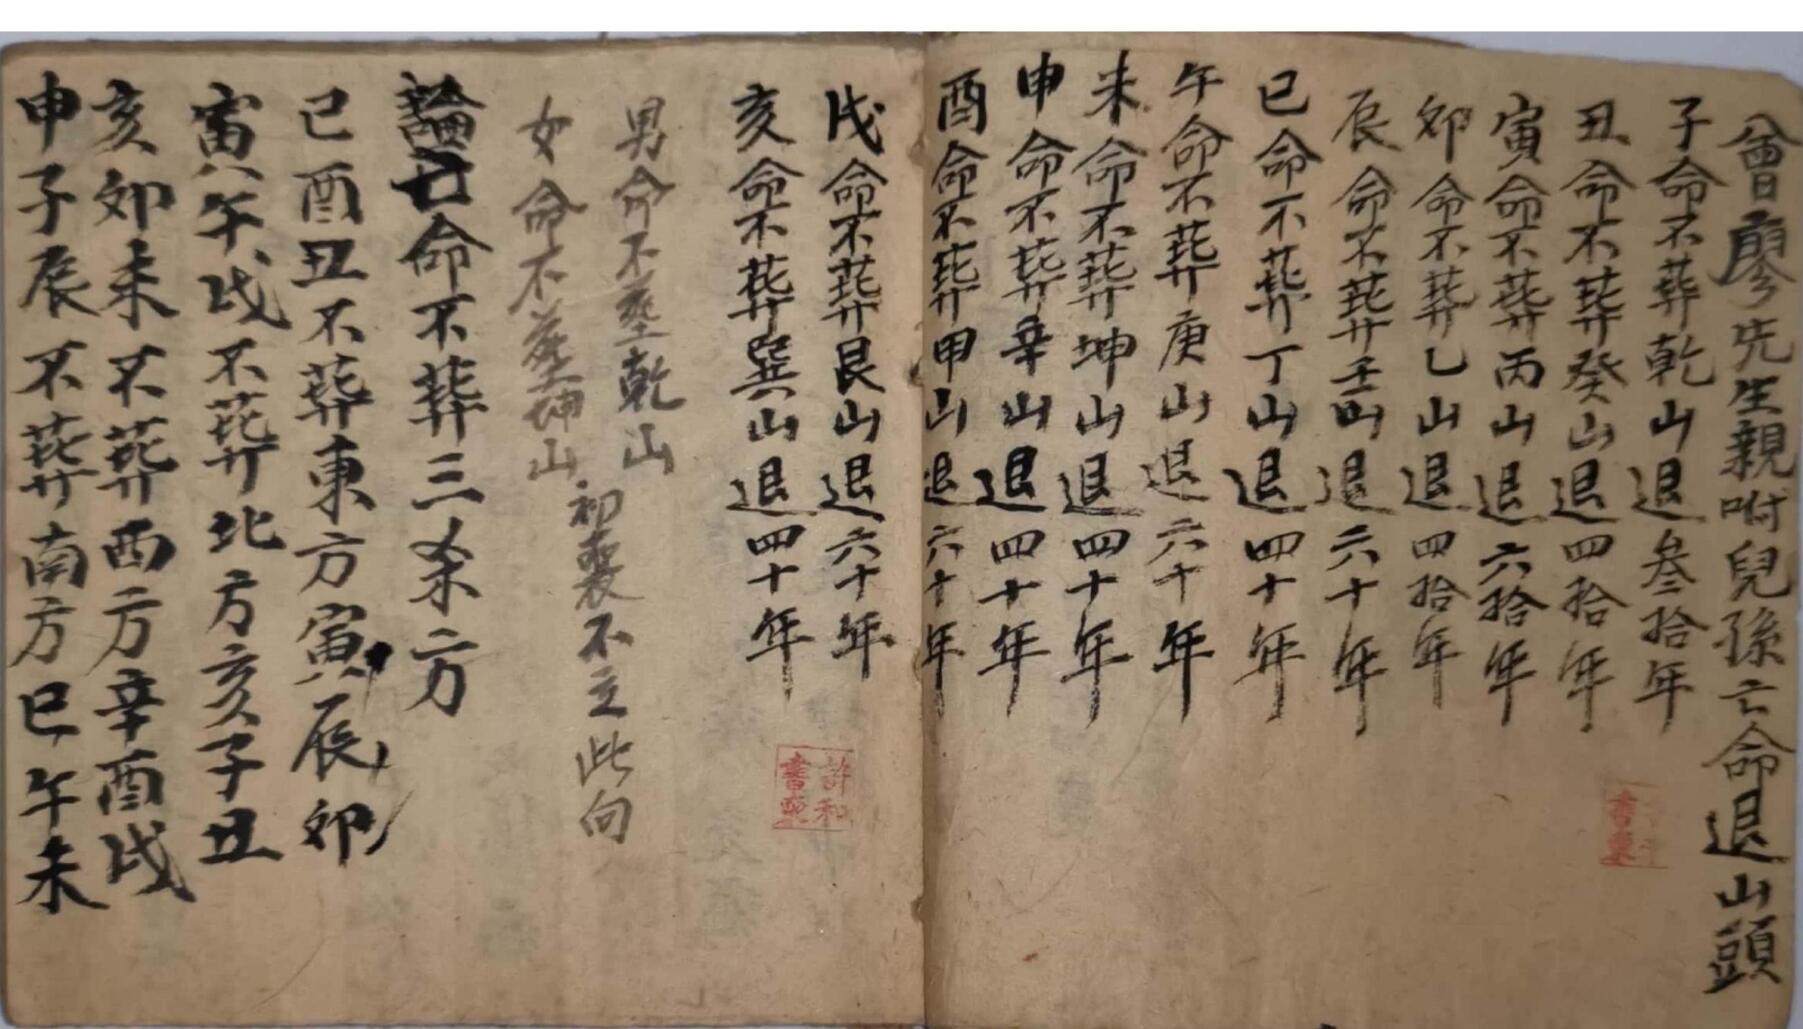 曾廖先生親咐兒孫亡命退山頭
子命不葬乾山退叁拾年
丑命不葬癸山退四拾年
寅命不葬丙山退六拾年
卯命不葬乙山退四拾年
辰命不葬壬山退六十年
巳命不葬丁山退四十年
午命不葬庚山退六十年
未命不葬坤山退四十年
申命不葬辛山退四十年
酉命不葬甲山退六十年
戌命不葬艮山退六十年
亥命不葬巽山退四十年
男命不塟乾山
女命不塟坤山
初塟不立此向
論亡命不葬三杀方
巳酉丑不葬東方寅辰卯
寅午戌不葬北方亥子丑
亥卯未不葬西方辛酉戌
申子辰不葬南方巳午未
許和
書
書